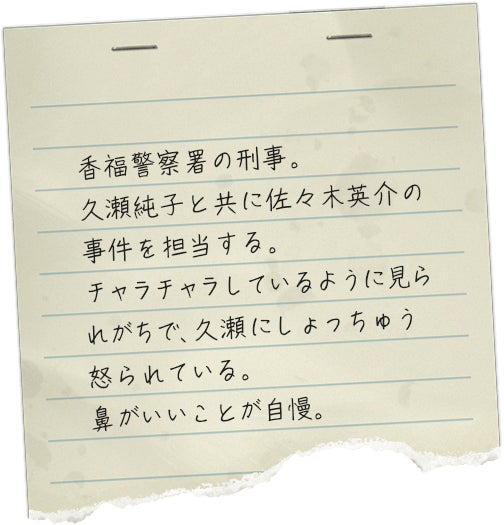 香福警察署の刑事。
久瀬純子と共に佐々木英介の
事件を担当する。
チャラチャラしているように見ら
れがちで、久瀬にしょっちゅう
怒られている。
鼻がいいことが自慢。